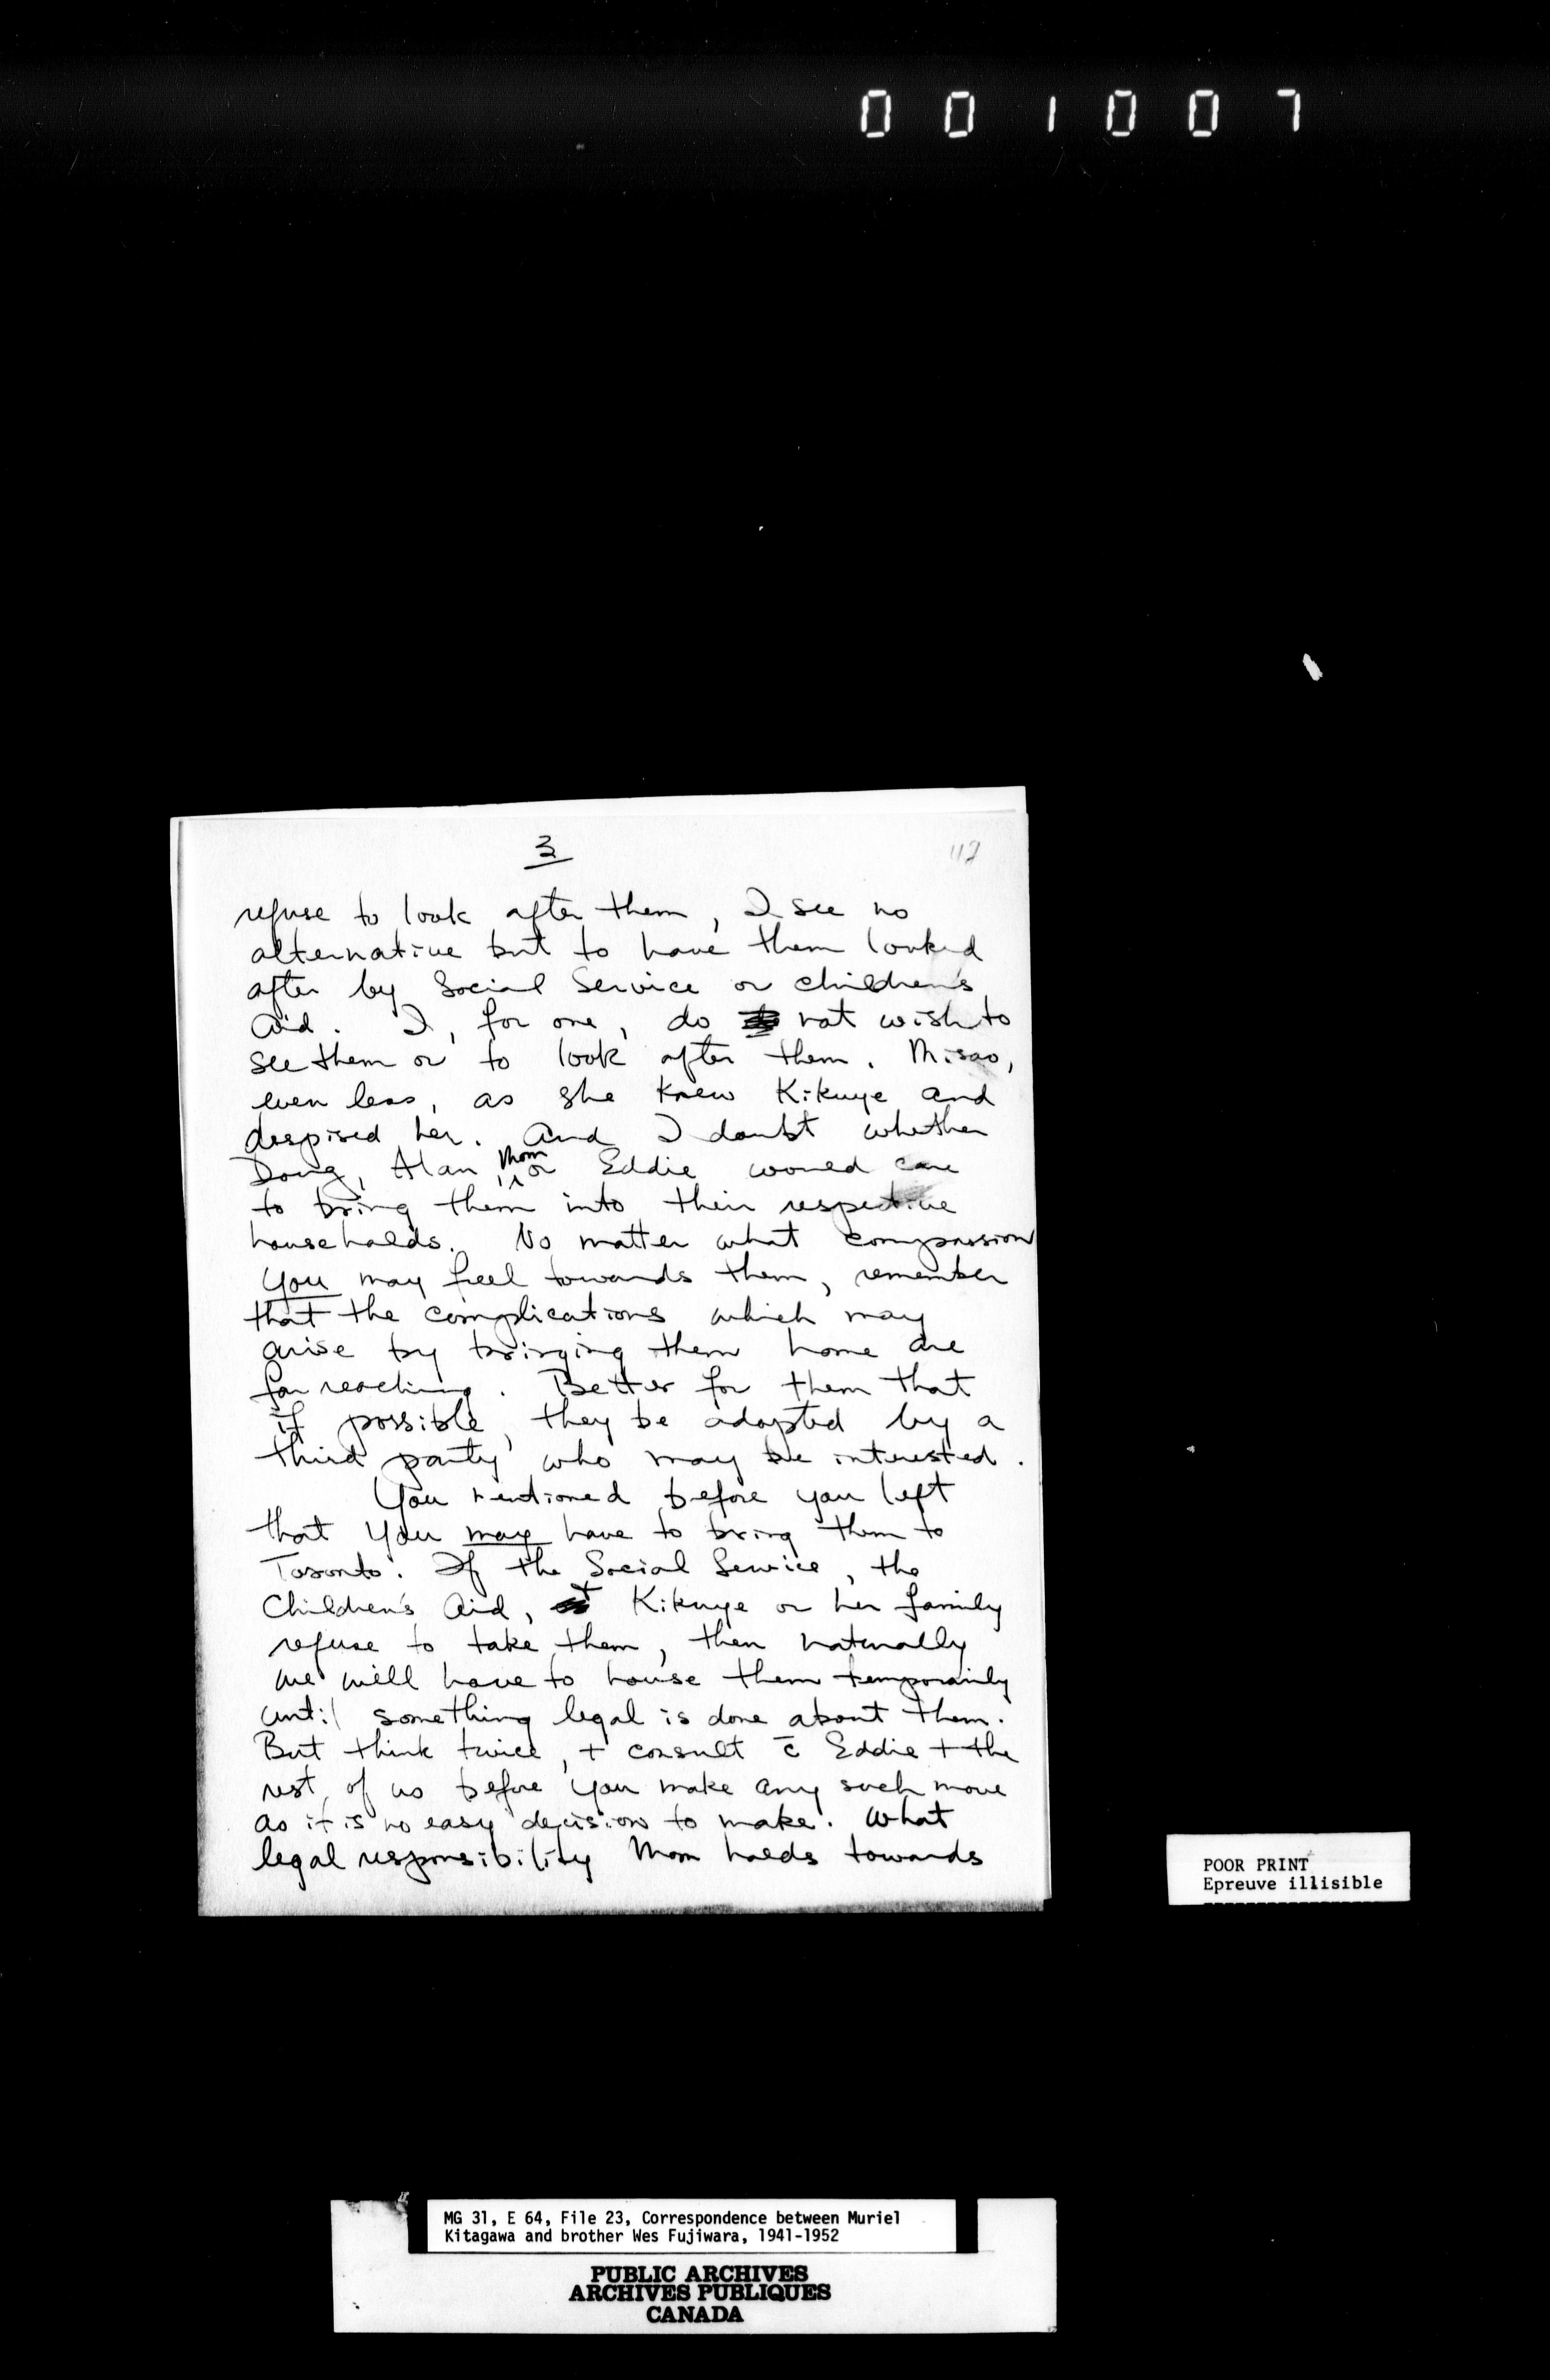 001007
3
112
refuse to look after them, I see no
alternative but to have them looked
after by Social Service or Children's
Aid. I, for one, do not wish to
see them or to look after them. Misao,
even less, as she knew Kikuye and
despised her. And I doubt whether
Doug, Alan, Mom or Eddie would care
to bring them into their respective
households. No matter what compassion
you may feel towards them, remember
that the complications which may
arise by bringing them home are
far reaching. Better for them that
if possible, they be adopted by a
third party who may be interested.
You mentioned before you left
that you may have to bring them to
Toronto. If the Social Service, the
Children's Aid, + Kikuye or her family
refuse to take them, then naturally
we will have to house them temporarily
until something legal is done about them.
But think twice, + consult c̄ Eddie + the
rest of us before you make any such move
as it is no easy decision to make. What
legal responsibility Mom holds towards
POOR PRINT
Epreuve illisible
MG 31, E 64, File 23, Correspondence between Muriel
Kitagawa and brother Wes Fujiwara, 1941-1952
PUBLIC ARCHIVES
ARCHIVES PUBLIQUES
CANADA